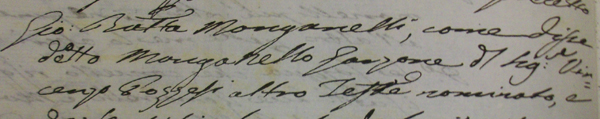 Gio: Batta Monganelli, come disse
detto Monganello Garzone di Sig: Vin=
cenzo Pozzesi altro Teste nominato, e